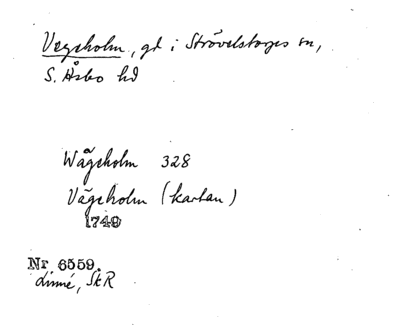 Vegeholm, gd i Strövelstorps sn,
S. Åsbo hd
Wägeholm 328
Vägeholm (kartan)
1749
Nr 6559.
Linné, SkR